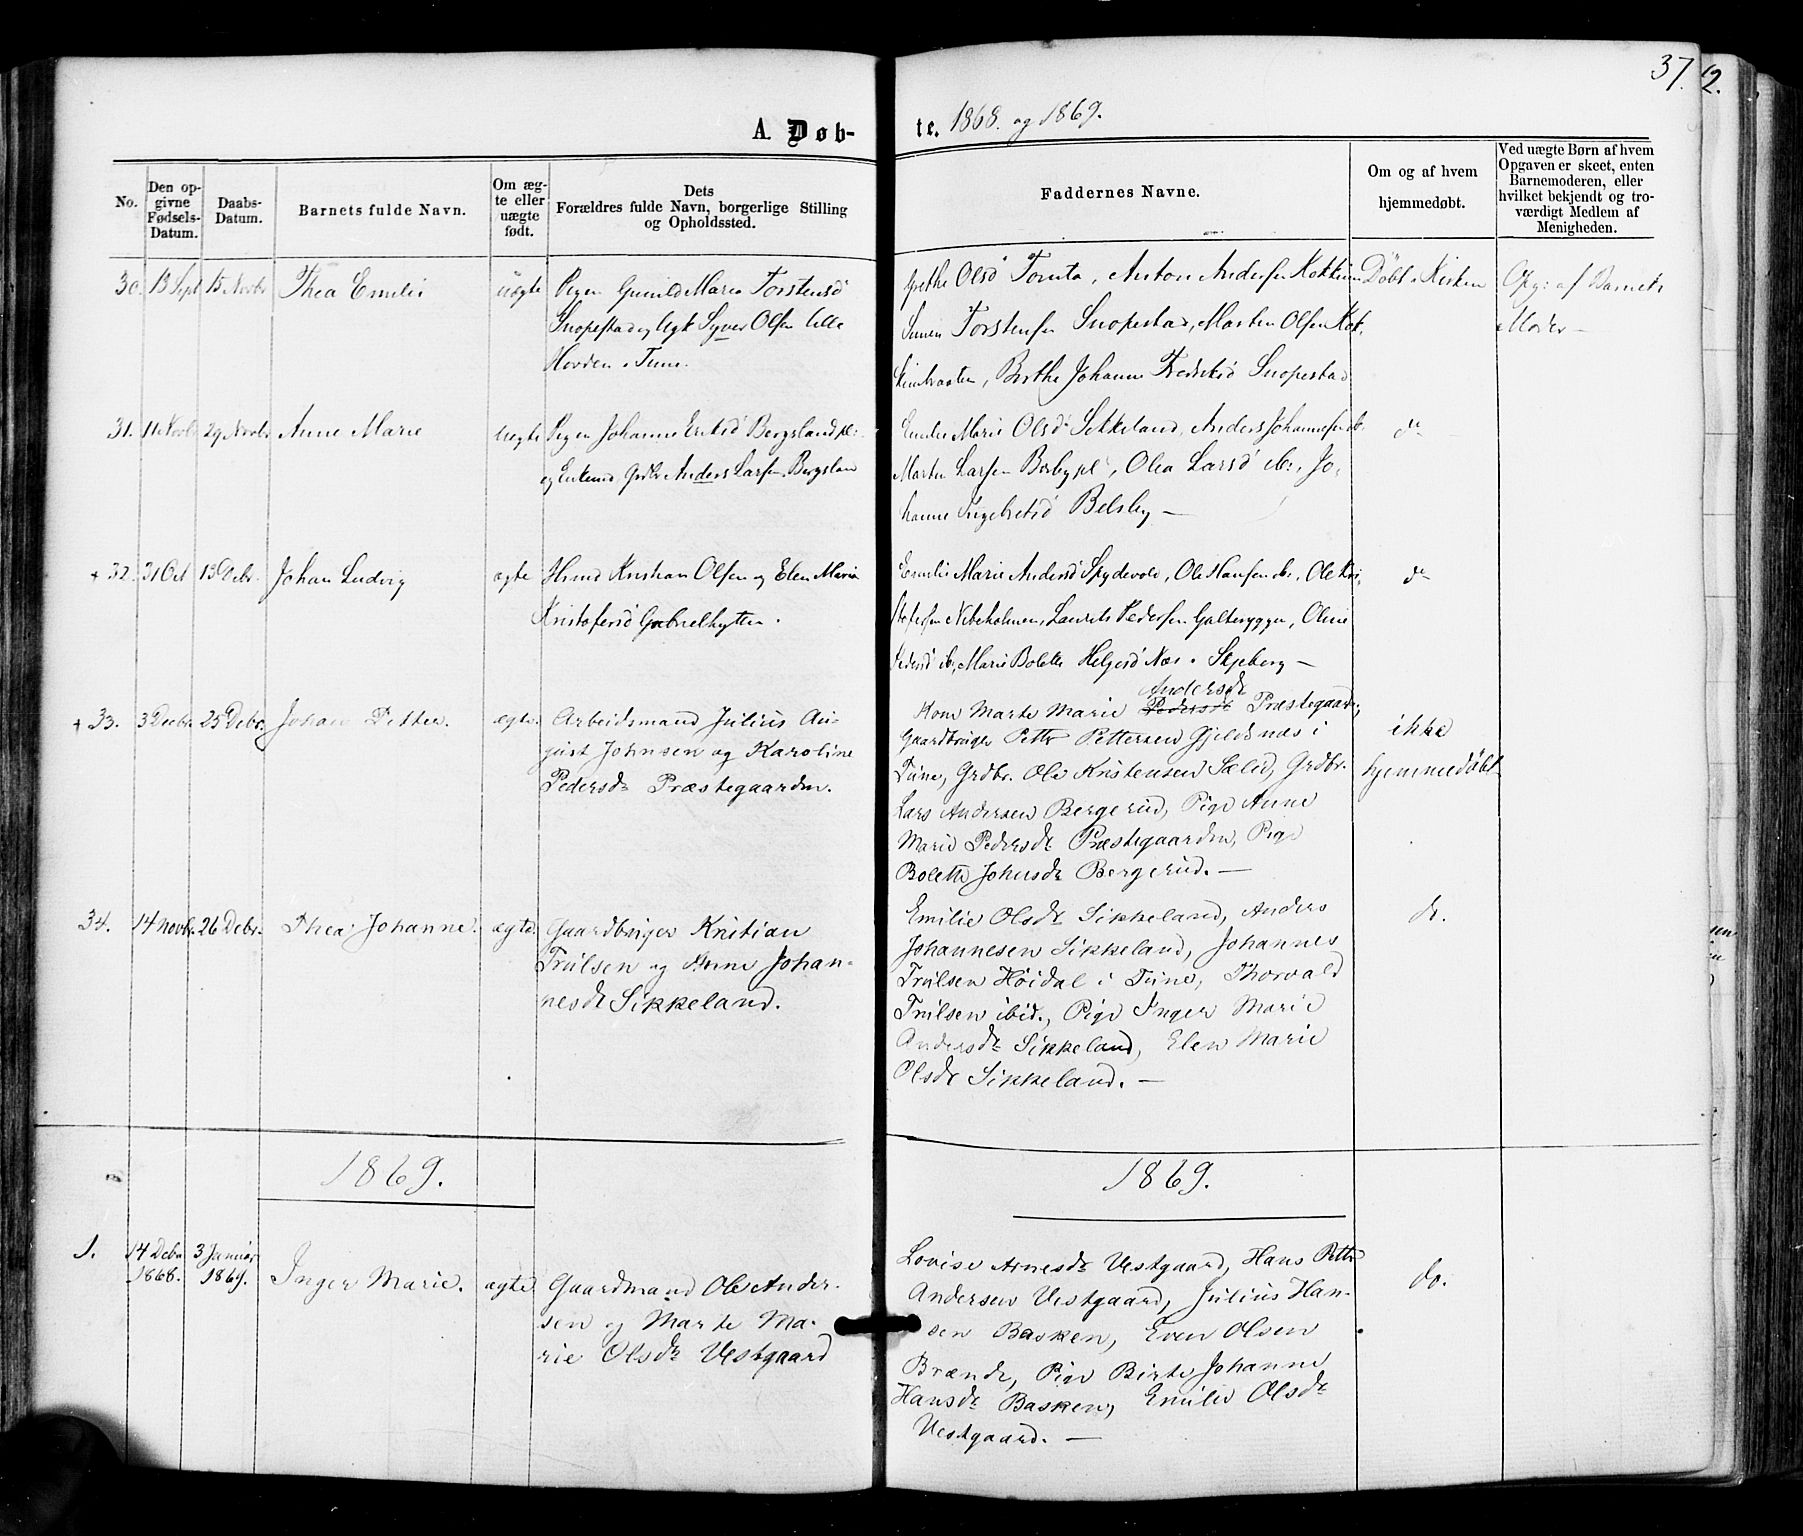 37.
2.
A. Døb-
te. 1868. og 1869.
No.
Den op-
givne
Fødsels-
Datum.
Daabs-
Datum.
Barnets fulde Navn.
Om æg-
te eller
uægte
født.
Dets
Forældres fulde Navn, borgerlige Stilling
og Opholdssted.
Faddernes Navne.
Om og af hvem
hjemmedøbt.
Ved uægte Børn af hvem
Opgaven er skeet, enten
Barnemoderen, eller
hvilket bekjendt og tro-
værdigt Medlem af
Menigheden.
30. 13 Spt 15 Novbr Thea Emilie uægte
Pigen Gunild Marie Torstensd
Snopestad og Ugk Syver Olsen Lille
Hovden i Tune.
Grethe Olsd Tomta, Anton Andersen Kokkim
Torstensen Snopestad, Morten Olsen Kok-
Berthe Johanne Fredriksd Snopestad
Døbt i Kirken
Opg: af Barnets
Moder –
31. 11 Novbr 29 Novbr Anne Marie uegte
Pigen Johanne Eriksd Bergsland pl:
og Enkemd Grdbr Anders Larsen Bergsland
Emilie Marie Olsd Sikkeland, Anders Johannesen ib.
Marten Larsen Borby pl, Olea Larsd ib., Jo-
hanne Ingebretsd Belsby –
do
+ 32. 31 Oct 13 Debr. Johan Ludvig ægte
Hsmd Kristian Olsen og Elen Marie
Kristofersd Gabrielhytten.
Emilie Marie Andersd Skydevold, Ole Hansen ib., Ole Kri-
stofersen Nebeholmen, Laurits Pedersen Galteryggen, Oline
Pedersd ib, Marie Bolette Helgesd Næs i Skjeberg –
do
+ 33. 3 Decbr. 25 Debr. Johan Petter. ægte.
Arbeidsmand Julius Au-
gust Johnsen og Karoline
Pedersdr Præstegaarden.
Andersdr
Kone Marte Marie Pedersdr Præstegaarden,
Gaardbruger Petter Pettersen Gjeldsnæs i
Tune, Grdbr. Ole Kristensen Sælid, Grdbr.
Lars Andersen Bergerud, Pige Anne
Marie Pedersdr Præstegaarden, Pige
Bolette Johnsdr Bergerud. –
ikke
hjemmedøbt
34. 14 novbr. 26 Debr. Thea Johanne. ægte
Gaardbruger Kristian
Trulsen og Anne Johan-
nesdr Sikkeland.
Emilie Olsdr Sikkeland, Anders
Johannesen Sikkeland, Johannes
Trulsen Høidal i Tune, Thorvald
Trulsen ibid., Pige Inger Marie
Andersdr Sikkeland, Elen Marie
Olsdr Sikkeland. –
do.
1869.
1869.
1. 14 Debr 1868. 3 Januar 1869. Inger Marie. ægte
Gaardmand Ole Ander-
sen og Marte Ma-
rie Olsdr Vestgaard
Lovise Arnesdr Vestgaard, Hans Petter
Andersen Vestgaard, Julius Han-
sen Basken, Even Olsen
Brænde, Pige Birte Johanne
Hansdr Basken, Emilie Olsdr
Vestgaard. –
do.